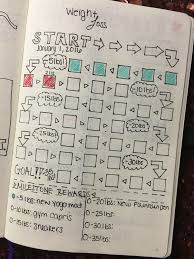 Weight
Loss
START
January 1, 2016
-5lbs!
-10lbs!
-15lbs!
-20lbs!
-25lbs!
-30lbs!
GOAL!
-35lbs!
MILESTONE REWARDS
0-5lbs: new yoga mat
0-10lbs: gym capris
0-15lbs: sneakers
0-20lbs: New Foundation
0-25lbs:
0-30lbs:
0-35lbs: